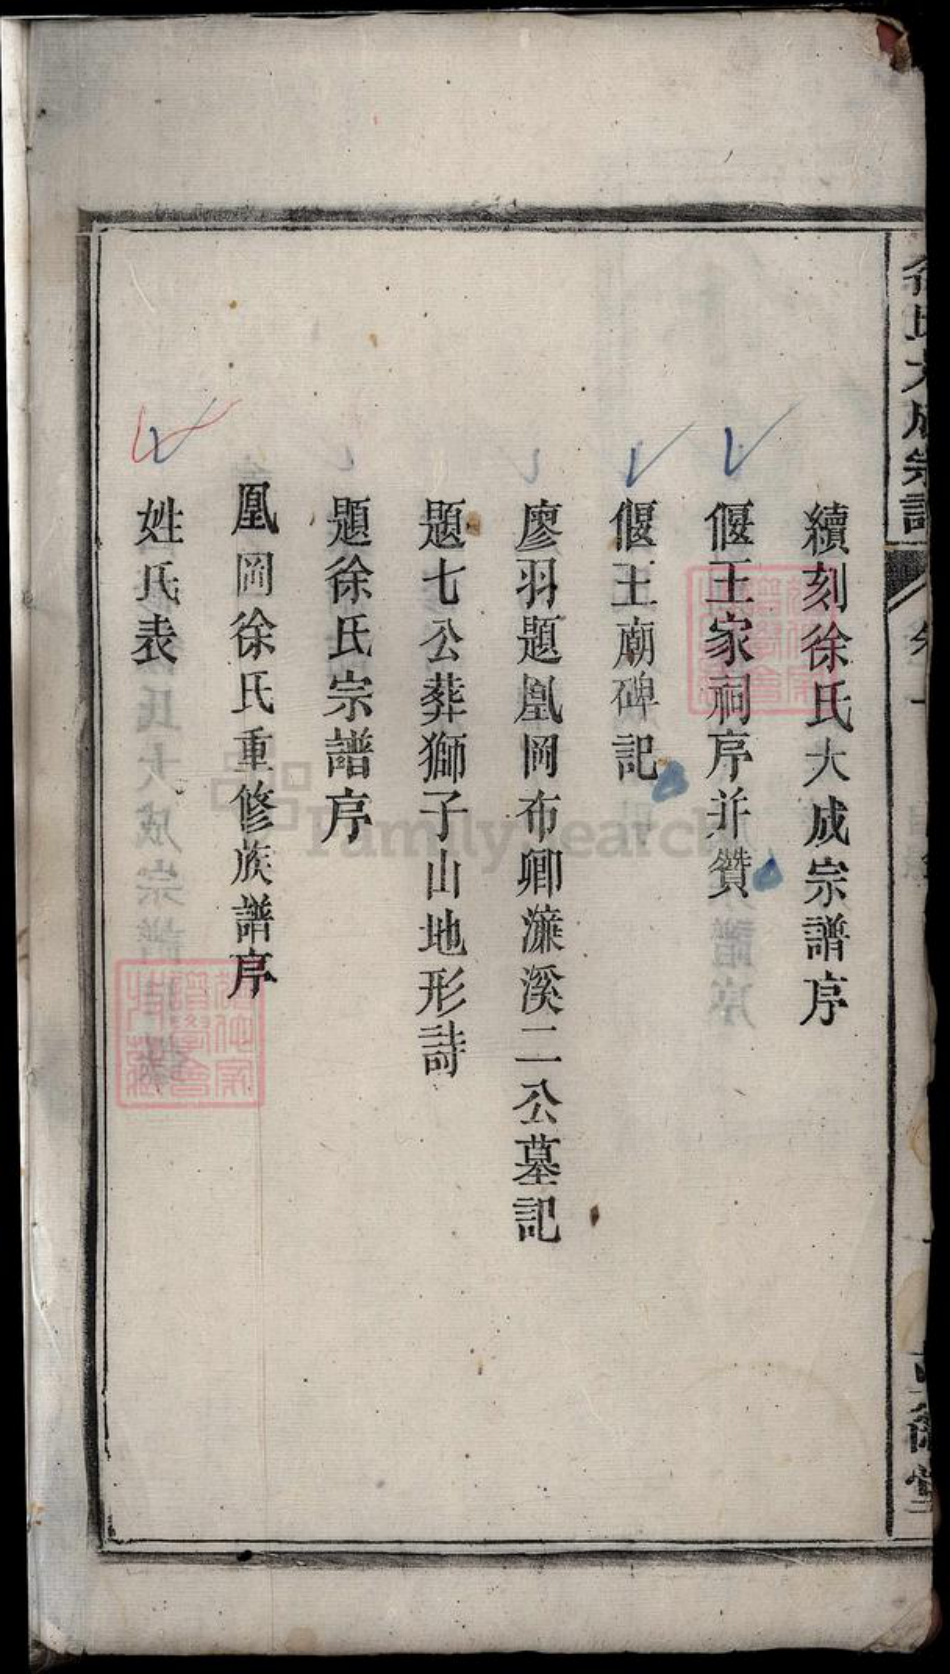 續刻徐氏大成宗譜序
偃王家祠序并贊
偃王廟碑記
廖羽題凰岡布卿濂溪二公墓記
題七公葬獅子山地形詩
題徐氏宗譜序
凰岡徐氏重修族譜序
姓氏表
FamilySearch